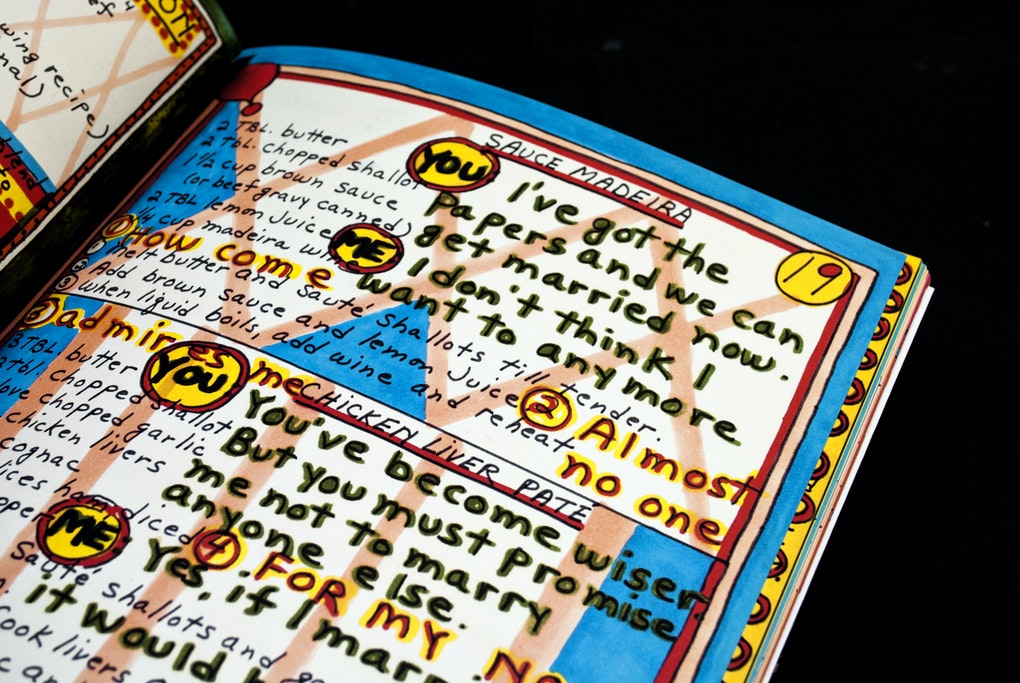 wing recipe)
nal)
SAUCE MADEIRA
19
2 TBL. butter
2 Tbl. chopped shallot
1 1/2 cup brown sauce
(or beef gravy canned)
2 TBL lemon Juice
1/4 cup madeira wine
① melt butter and Sauté shallots till tender.
② Add brown sauce and lemon Juice
③ when liquid boils, add wine and reheat
YOU
I've got the
Papers and we can
get married now.
ME
I don't think I
want to anymore.
① How come
② Almost
no one
③ admires me
CHICKEN LIVER PATE
3 TBL. butter
2 Tbl. chopped shallot
clove chopped garlic
chicken livers
cognac
slices ham diced
YOU
You've become wiser.
But you must promise
me not to marry
anyone else.
ME
Yes, if I marr
it would b
④ FOR MY NO
Sauté shallots and
cook livers